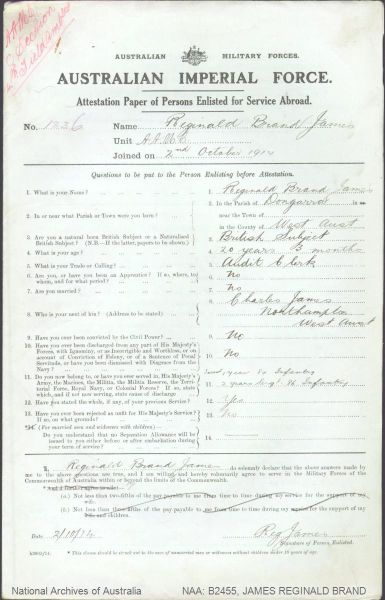 A.A.M.C.
C Section
Field Ambulance
AUSTRALIAN MILITARY FORCES.
AUSTRALIAN IMPERIAL FORCE.
Attestation Paper of Persons Enlisted for Service Abroad.
No. Name Reginald Brand James
Unit A.A.M.C
Joined on 2nd October 1914
Questions to be put to the Person Enlisting before Attestation.
1. What is your Name? 1. Reginald Brand James
2. In or near what Parish or Town were you born? 2. In the Parish of Dongarra in or
near the Town of
in the County of West Aust
3. Are you a natural born British Subject or a Naturalised British Subject? (N.B.—If the latter, papers to be shown.) 3. British Subject
4. What is your age? 4. 20 years 3 months
5. What is your Trade or Calling? 5. Audit Clerk
6. Are you, or have you been an Apprentice? If so, where, to whom, and for what period? 6. No
7. Are you married? 7. No
8. Who is your next of kin? (Address to be stated) 8. Charles James
Northampton
West Aust
9. Have you ever been convicted by the Civil Power? 9. No
10. Have you ever been discharged from any part of His Majesty's Forces, with Ignominy, or as Incorrigible and Worthless, or on account of Conviction of Felony, or of a Sentence of Penal Servitude, or have you been dismissed with Disgrace from the Navy? 10. No
11. Do you now belong to, or have you ever served in, His Majesty's Army, the Marines, the Militia, the Militia Reserve, the Territorial Force, Royal Navy, or Colonial Forces? If so, state which, and if not now serving, state cause of discharge 11. Infantry
12. Have you stated the whole, if any, of your previous Service? 12. Yes
13. Have you ever been rejected as unfit for His Majesty's Service? If so, on what grounds? 13.
(For married men and widowers with children)—
Do you understand that no Separation Allowance will be issued to you either before or after embarkation during your term of service? 14.
I, Reginald Brand James do solemnly declare that the above answers made by me to the above questions are true, and I am willing and hereby voluntarily agree to serve in the Military Forces of the Commonwealth of Australia within or beyond the limits of the Commonwealth.
(a.) Not less than two-fifths of the pay payable to me from time to time during my service for the support of my wife.
(b.) Not less than three-fifths of the pay payable to me from time to time during my service for the support of my wife and children.
Date 2/10/14 Reg James
Signature of Person Enlisted.
* This clause should be struck out in the case of unmarried men or widowers without children under 16 years of age.
National Archives of Australia NAA: B2455, JAMES REGINALD BRAND